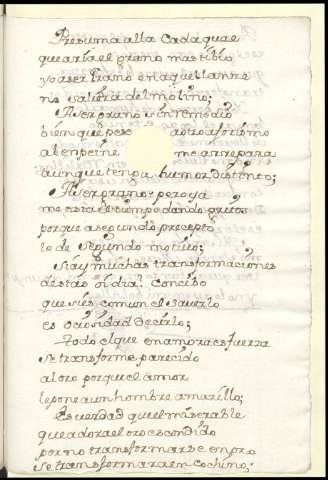 Presuma alla cada qual
que aria el grano mas tibio
yo a ser grano en aquel lanze
no saliera del molino;
A ser grano sin remedio
bien que pese a otro aforismo
al en peine me arrepara
aunque tenga humor distinto;
A ser grano pero ya
me esta el tiempo dando gritos
porque a segundo precepto
le de segundo motivo;
Si ay muchas transformaciones
destas oi dia: Concibo
que si es comun el sauerlo
es ociosidad decirlo;
Todo el que enamora es fuerza
se transforme parecido
al oro porque el amor
le pone a un hombre amarillo;
Es uerdad que el miserable
que adora el oro escondido
por no transformarse en pro
se transformara en cochino;